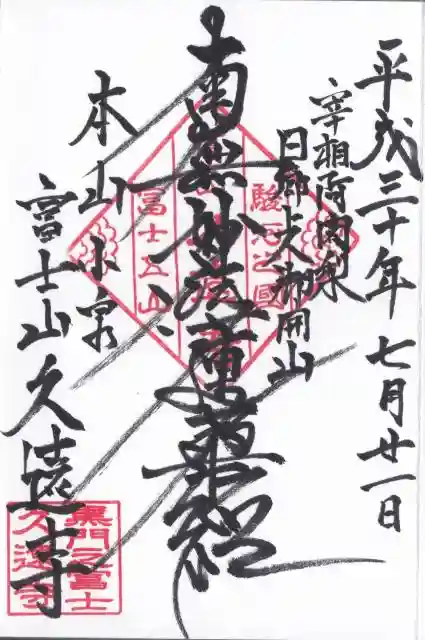 平成三十年七月廿一日
宰相阿闍梨
日郷上人御開山
南無妙法蓮華経
本山小泉
富士山久遠寺
駿河之國
富士五山
黒門之富士
久遠寺